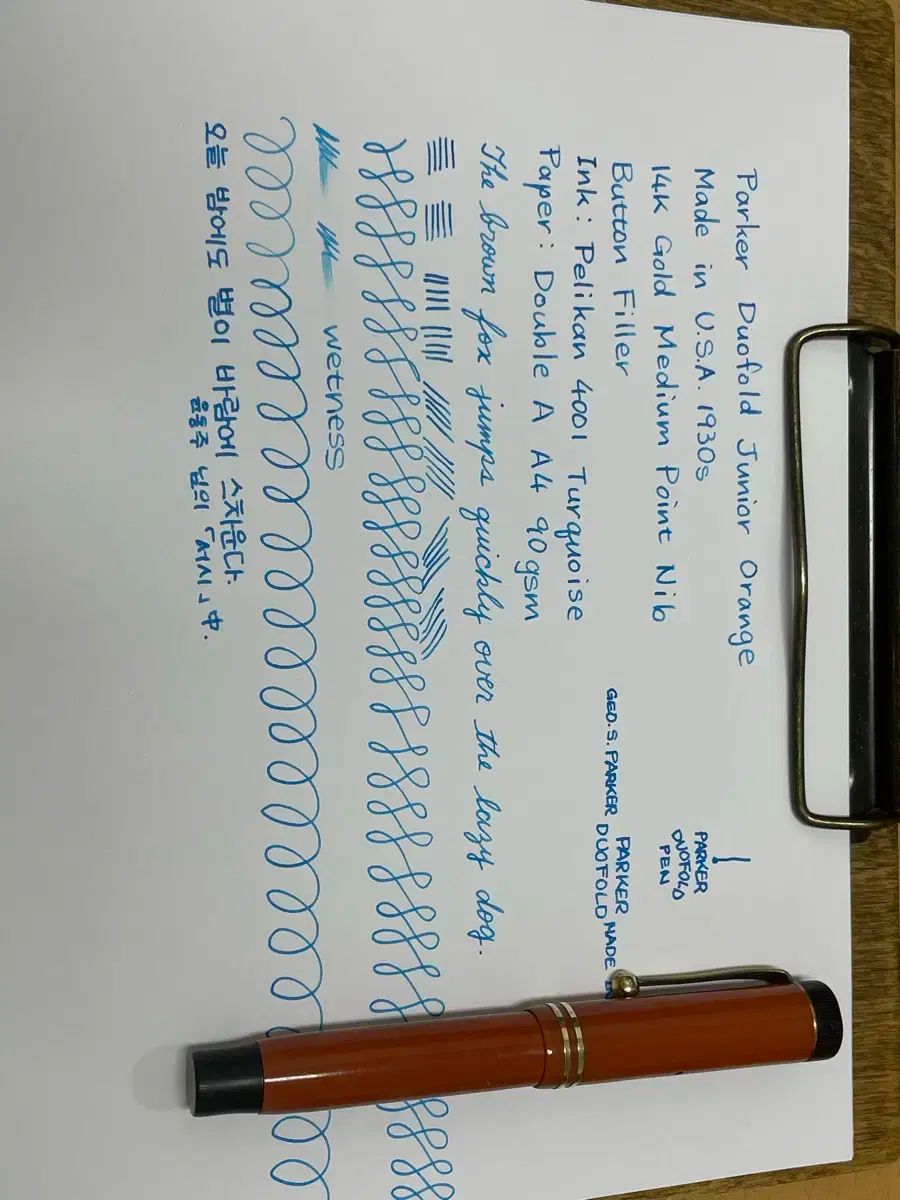 Parker Duofold Junior Orange
Made in U.S.A. 1930s
14K Gold Medium Point Nib
Button Filler
Ink: Pelikan 4001 Turquoise
Paper: Double A A4 90gsm
PARKER
DUOFOLD
PEN
PARKER
GEO. S. PARKER DUOFOLD MADE
The brown fox jumps quickly over the lazy dog.
wetness
오늘 밤에도 별이 바람에 스치운다.
윤동주 님의 「서시」 中.